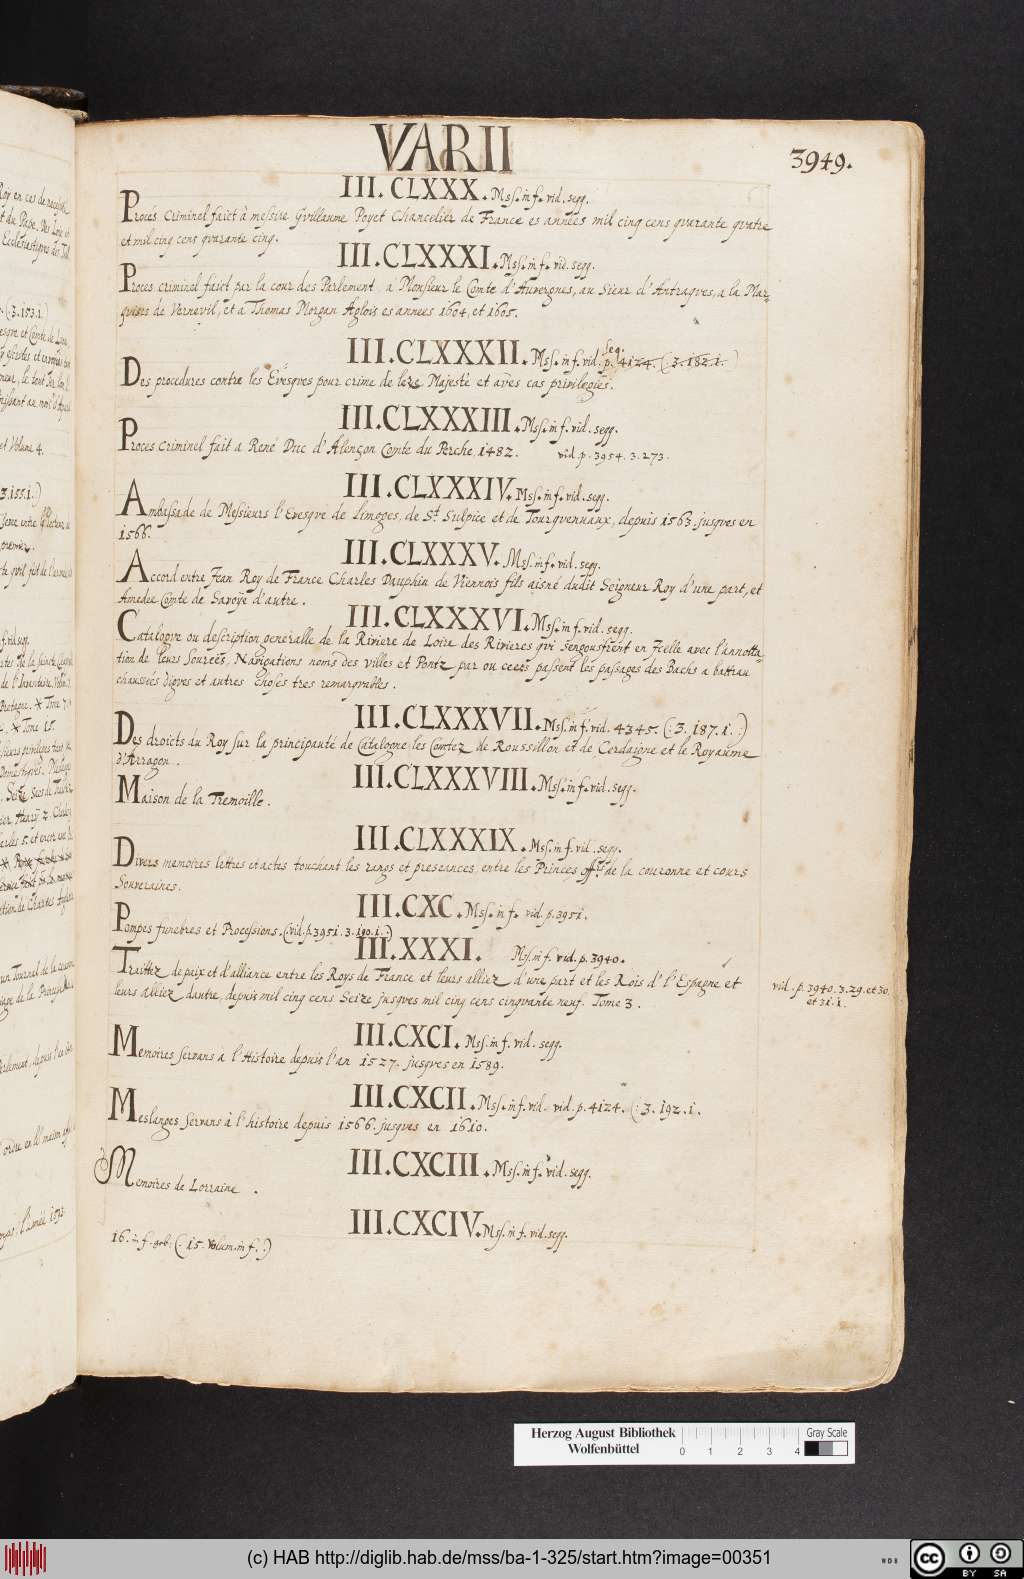 VARII
3949.
III. CLXXX. Mss. in f. vid. segg.
Procés Criminel faict à messire Gvillaume Poyet Chancelier de France es années mil cinq cens qvarante qvatre
et mil cinq cens qvarante cinq.
III. CLXXXI. Mss. in f. vid. segg.
Proces criminel faict par la cour des Parlement, a Monsieur le Comte d'Auvergnes, au Sieur d'Antragves, a la Mar-
qvises de Vernevil, et a Thomas Morgan Aglois es annees 1604. et 1605.
III. CLXXXII. Mss. in f. vid. seg. p. 4124. (:3.182.1.)
Des procedures contre les Evesqves pour crime de leze Majesté et avtres cas privilegiés.
III. CLXXXIII. Mss. in f. vid. segg.
Proces criminel fait a René Duc d'Alençon Comte du Perche, 1482. vid. p. 3954. 3. 273.
III. CLXXXIV. Mss. in f. vid. segg.
Ambassade de Messieurs l'Evesqve de Limoges, de St. Sulpice et de Tourqvenvaux, depuis 1563. jusqves en
1566.
III. CLXXXV. Mss. in f. vid. segg.
Accord entre Jean Roy de France Charles Dauphin de Viennois fils aisné dudit Seigneur Roy d'une part, et
Amedee Comte de Savoÿe d'autre.
III. CLXXXVI. Mss. in f. vid. segg.
Catalogve ou description generalle de la Riviere de Loire des Rivieres qvi sengouffrent en Jcelle avec l'annotta-
tion de leurs Sources, Navigations noms des villes et Pontz par ou elles passent les passages des Bachs a battau
chaussées digves et autres choses tres remarqvables.
III. CLXXXVII. Mss. in f. vid. 4345. (:3. 187. 1.)
Des droicts du Roy sur la principauté de Catalogne les Comtez de Roussillon et de Cerdaigne et le Royaume
d'Arragon.
III. CLXXXVIII. Mss. in f. vid. segg.
Maison de la Tremoille.
III. CLXXXIX. Mss. in f. vid. segg.
Divers memoires lettres et actes touchant les rangs et preseances, entre les Princes off. de la couronne et cours
Souveraines.
III. CXC. Mss. in f. vid. p. 3951.
Pompes funebres et Processions. (:vid. p. 3951. 3. 190. 1.)
III. XXXI. Mss. in f. vid. p. 3940.
Traittez de paix et d'alliance entre les Roys de France et leurs alliez d'une part et les Rois d'l'Espagne et
leurs alliez dautre, depuis mil cinq cens Seize jusqves mil cinq cens cinqvante neuf. Tome 3.
vid. p. 3940. 3. 29. et 30.
et 31. 1.
III. CXCI. Mss. in f. vid. segg.
Memoires servans a l'Histoire depuis l'an 1527. jusqves en 1589.
III. CXCII. Mss. in f. vid. vid. p. 4124. (:3. 192. 1.
Meslanges servans à l'histoire depuis 1566. jusqves en 1610.
III. CXCIII. Mss. in f. vid. segg.
Memoires de Lorraine.
III. CXCIV. Mss. in f. vid. segg.
16. in f. geb. (:15. Volum. in f.)
Herzog August Bibliothek
Wolfenbüttel
0 1 2 3 4
Gray Scale
(c) HAB http://diglib.hab.de/mss/ba-1-325/start.htm?image=00351
WDB
cc BY SA